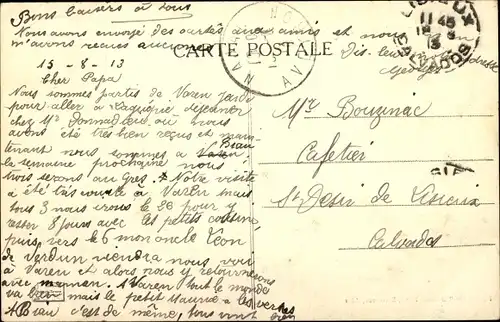 Bons baisers à tous
Nous avons envoyé des cartes aux amis et nous
n'avons reçues aucune
Dis-leur
Georges
CARTE POSTALE
15-8-13
Cher Papa
Nous sommes partis de Varen jeudi
pour aller à Laguépie déjeuner
chez Mr Donnadieu où nous
avons été très bien reçus et main-
tenant nous sommes à Varen
la semaine prochaine nous
irons aux Gres. Notre visite
a été très à Varen mais
tous 3 nous irons le 26 pour y
rester 8 jours avec les petits cousins
puis vers le 6 mon oncle Léon
de Verdun viendra nous voir
à Varen et alors nous y retournerons
avec maman. A Varen tout le monde
va bien mais le petit Maurice a les vers
A c'est de même, tous vont
bien
Mr Bouzinac
Cafetier
St Désir de Lisieux
Calvados
LISIEUX
11 45
13
CALVADOS